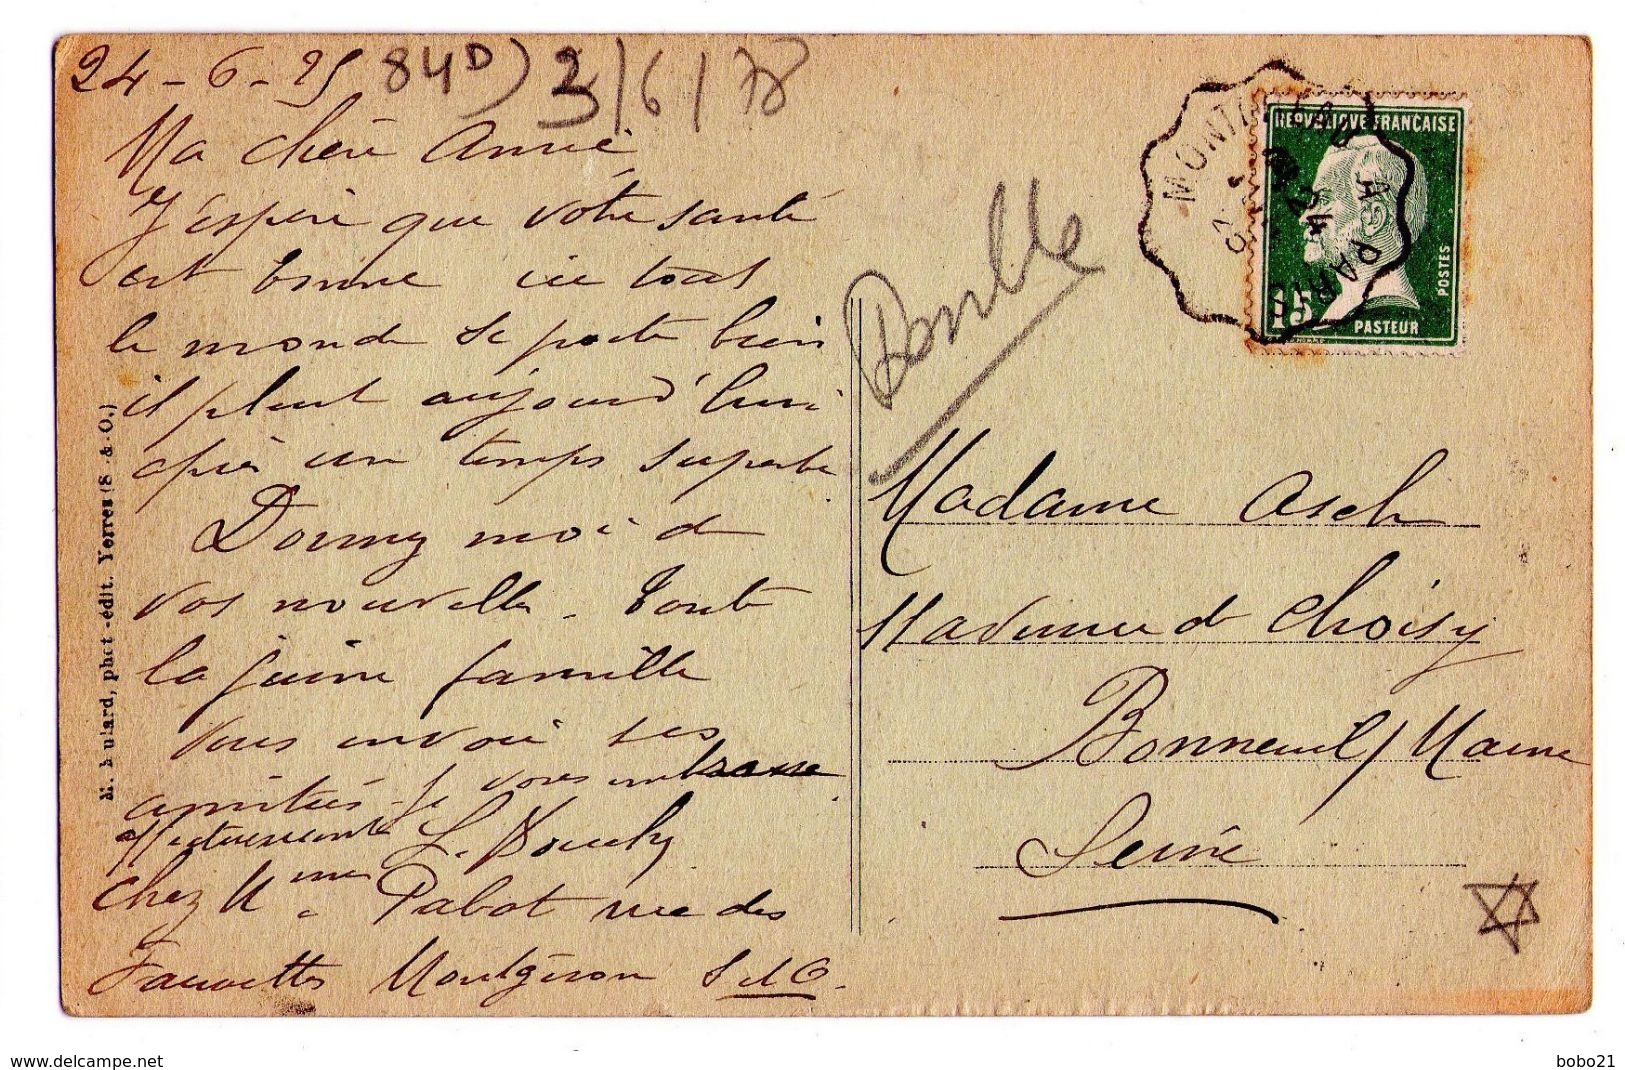 24-6-25 84D) 3/6/78
Ma chère Amie,
J'espère que votre santé
est bonne ici tout
le monde se porte bien
il pleut aujourd'hui
après un temps superbe
Donnez moi de
vos nouvelles. Toute
la jeune famille
vous envoie ses
amitiés. Je vous embrasse
affectueusement
Chez Mme Pabot rue des
Fauvettes Montgeron S et O.
M. Mulard, phot-édit. Yerres (S.-&-O.)
Double
REPUBLIQUE FRANCAISE
15
PASTEUR
POSTES
A PARIS
Madame Asch
11 avenue de Choisy
Bonneuil s/ Marne
Seine
www.delcampe.net
bobo21